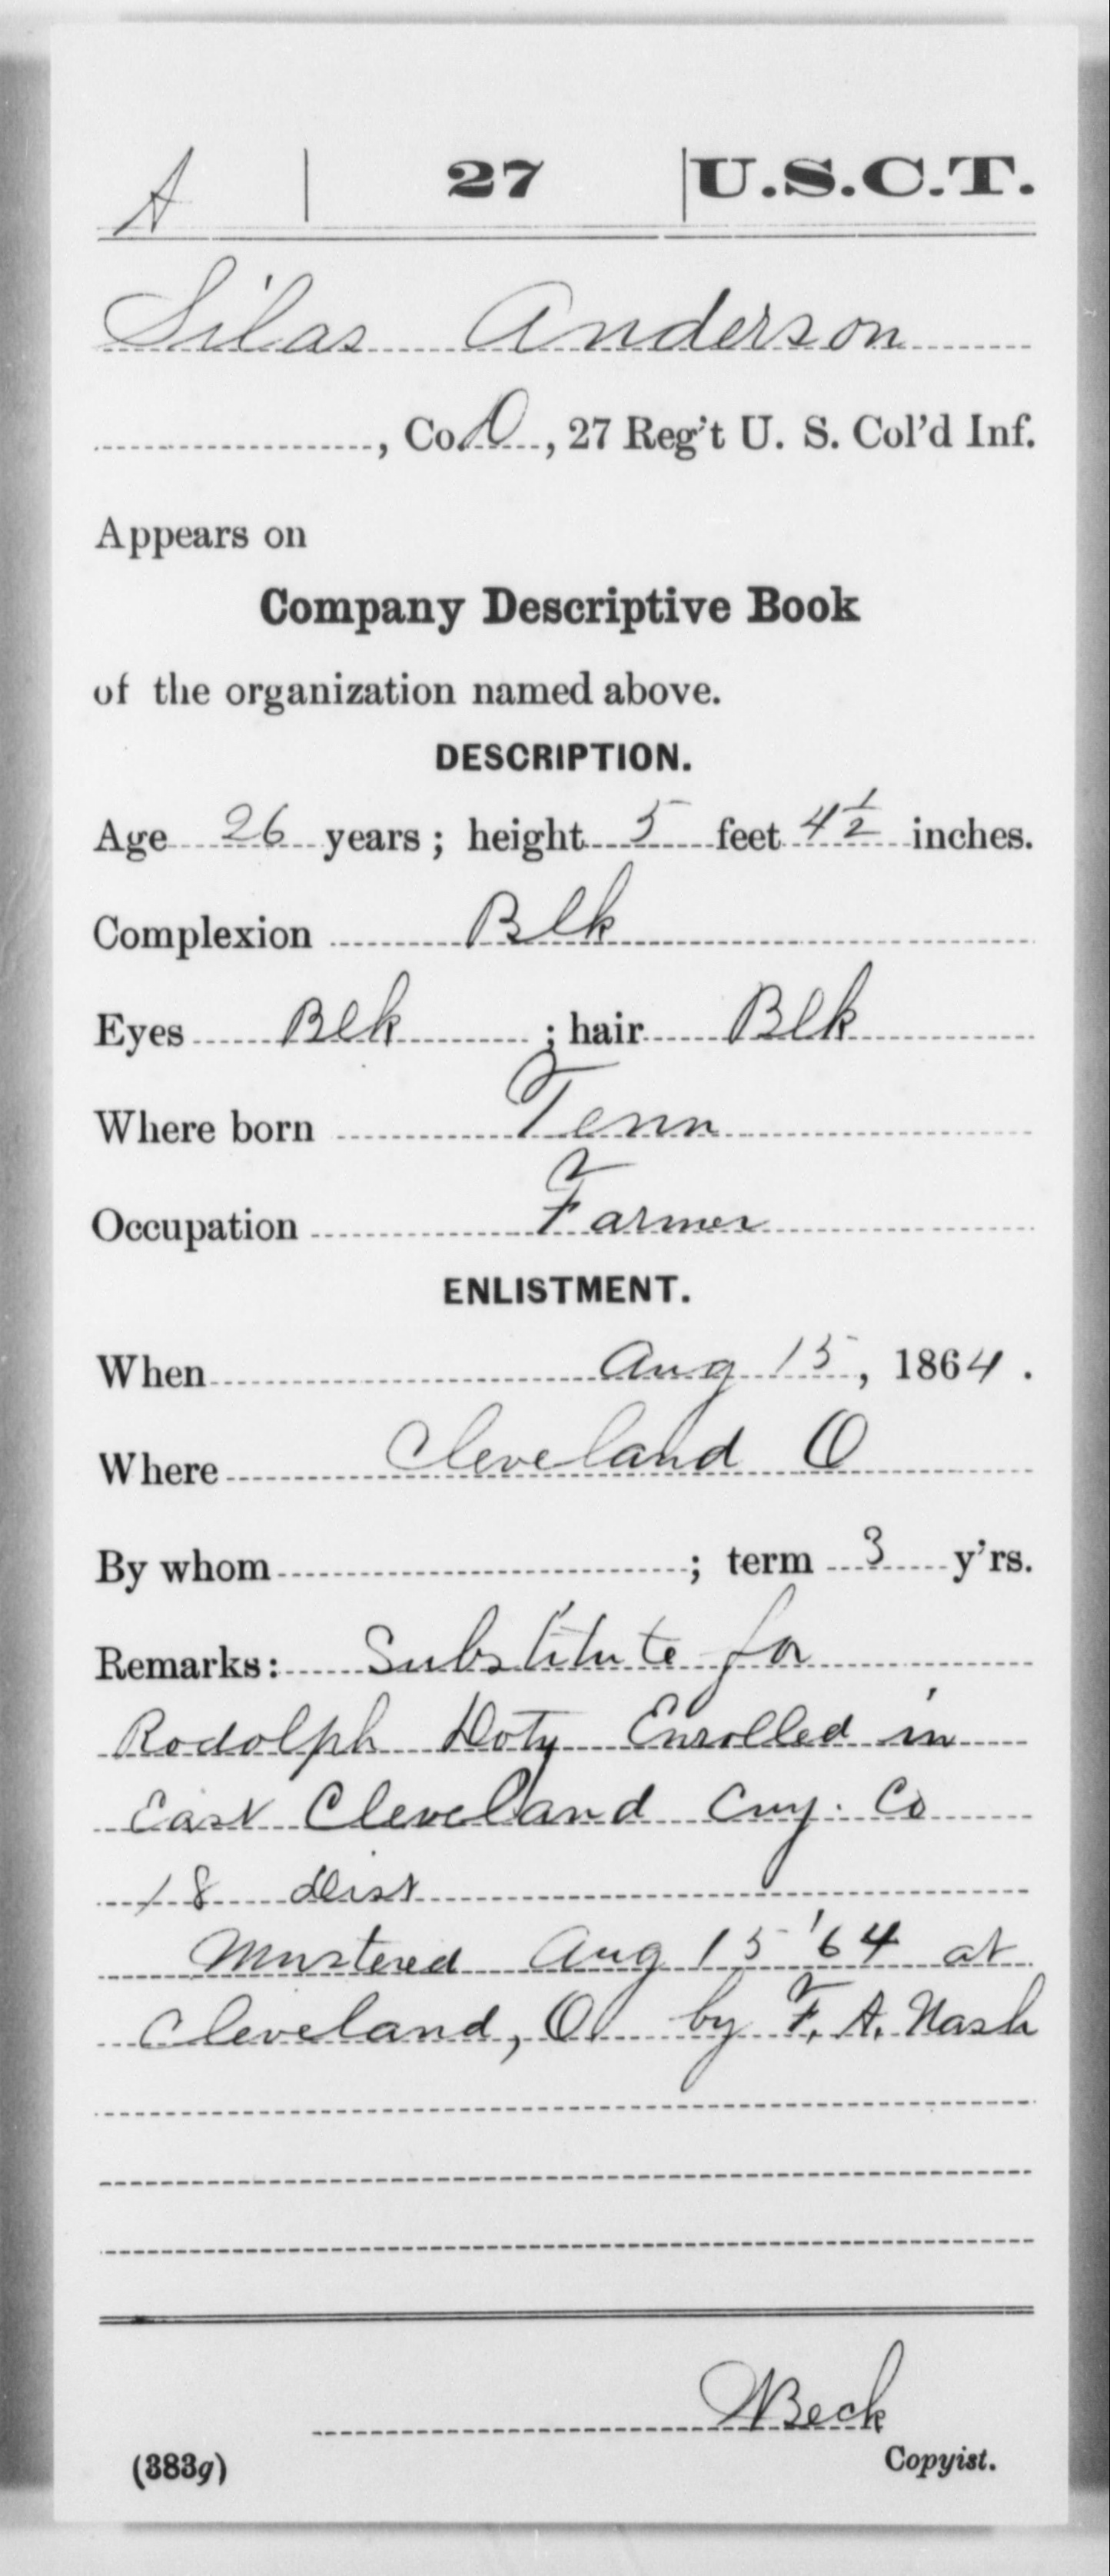 A | 27 | U.S.C.T.
Silas Anderson
, Co. D, 27 Reg't U. S. Col'd Inf.
Appears on
Company Descriptive Book
of the organization named above.
DESCRIPTION.
Age 26 years; height 5 feet 4½ inches.
Complexion Blk
Eyes Blk; hair Blk
Where born Tenn
Occupation Farmer
ENLISTMENT.
When Aug 15, 1864.
Where Cleveland O
By whom ; term 3 y'rs.
Remarks: Substitute for
Rodolph Doty Enrolled in
East Cleveland Cuy. Co
18 Dist
Mustered Aug 15 '64 at
Cleveland, O by F. A. Nash
Beck
(383g) Copyist.